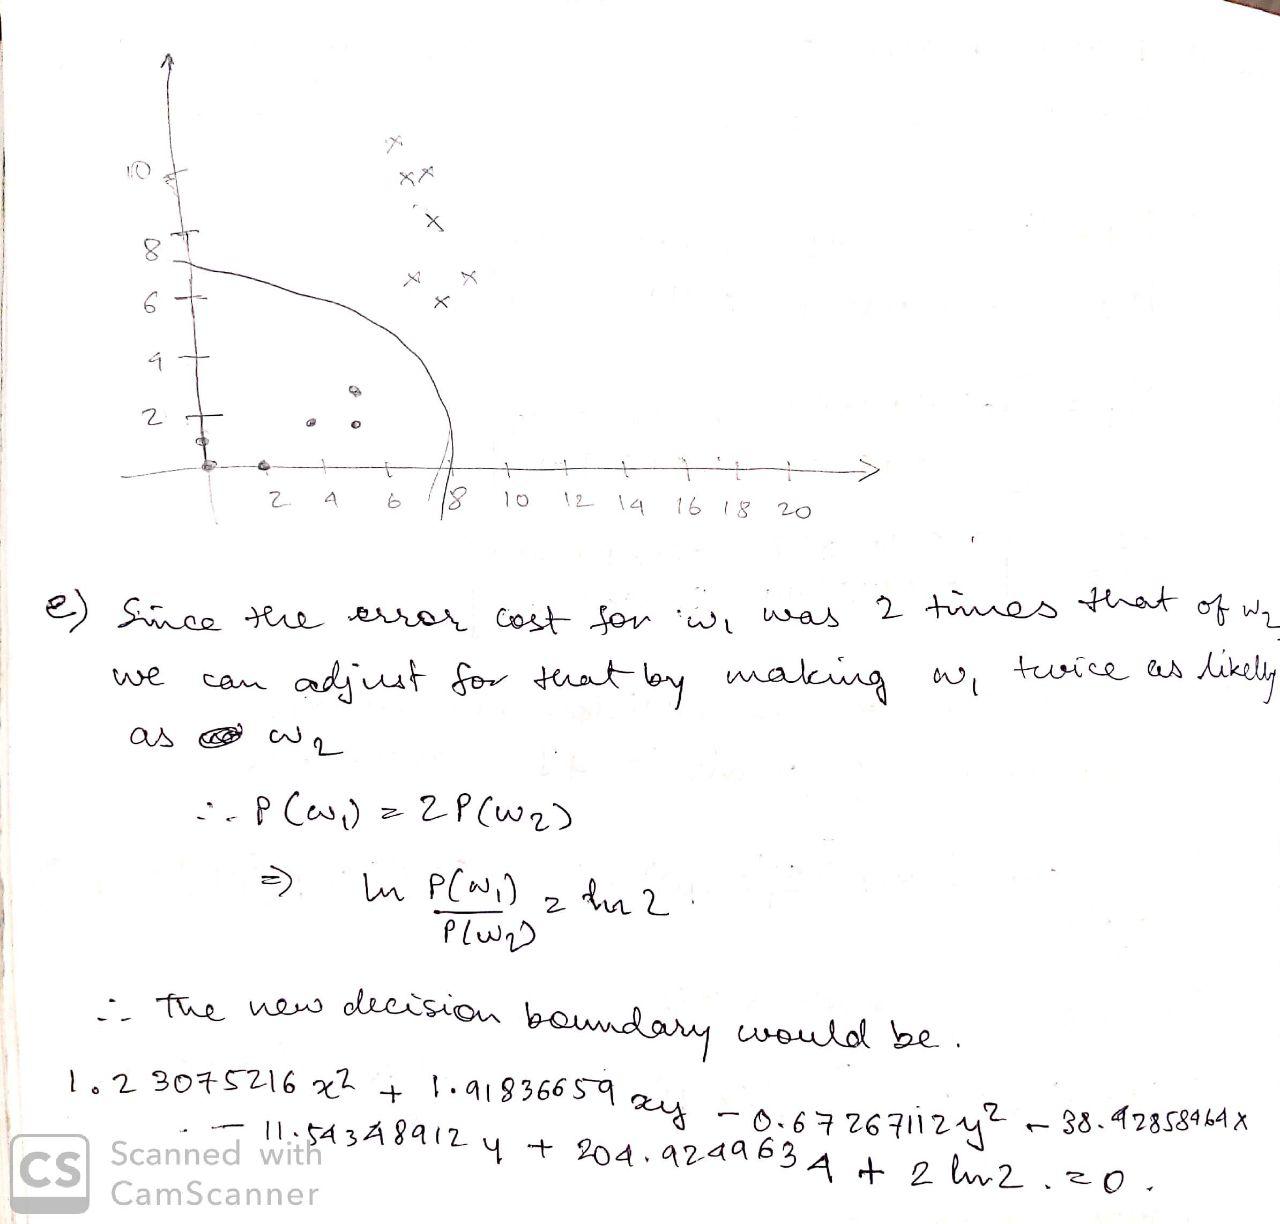 10
8
6
4
2
2 4 6 8 10 12 14 16 18 20
e) Since the error cost for w₁ was 2 times that of w₂
we can adjust for that by making w₁ twice as likely
as w₂
∴ P(w₁) = 2P(w₂)
⇒ ln P(w₁)/P(w₂) = ln 2.
∴ The new decision boundary would be.
1.23075216 x² + 1.91836659 xy - 0.67267112y² - 38.42858464x
- 11.54348912 y + 204.9249634 + 2 ln 2. = 0.
CS Scanned with
CamScanner